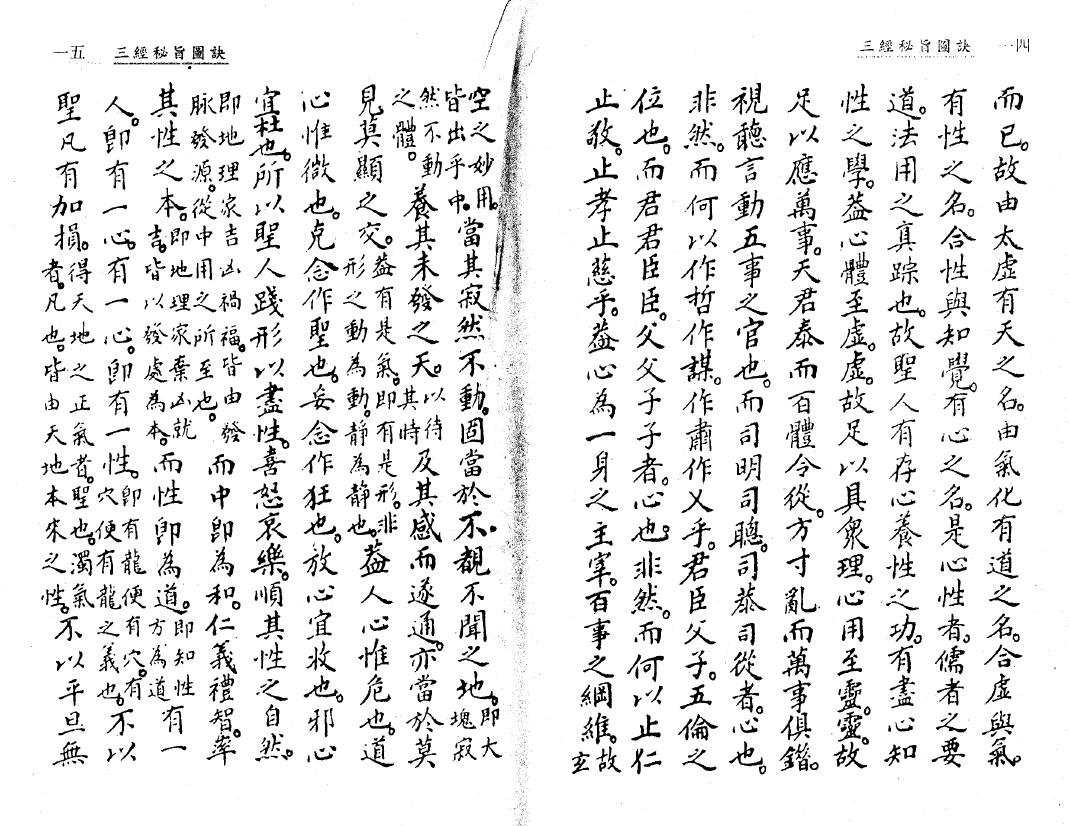 三經秘旨圖訣 一四
而已。故由太虛有天之名。由氣化有道之名。合虛與氣。
有性之名。合性與知覺。有心之名。是心性者。儒者之要
道。法用之真踪也。故聖人有存心養性之功。有盡心知
性之學。蓋心體至虛。虛故足以具衆理。心用至靈。靈故
足以應萬事。天君泰而百體令從。方寸亂而萬事俱錯。
視聽言動五事之官也。而司明司聰。司恭司從者。心也。
非然。而何以作哲作謀。作肅作乂乎。君臣父子。五倫之
位也。而君君臣臣。父父子子者。心也。非然。而何以止仁
止敬。止孝止慈乎。蓋心為一身之主宰。百事之綱維。故玄
三經秘旨圖訣 一五
空之妙用。皆出乎中。當其寂然不動。固當於不覩不聞之地。即大塊寂
然不動之體。養其未發之天。以待其時及其感而遂通。亦當於莫
見莫顯之交。蓋有是氣。即有是形。非形之動為動。靜為靜也。蓋人心惟危也。道
心惟微也。克念作聖也。妄念作狂也。放心宜收也。邪心
宜杜也。所以聖人踐形以盡性。喜怒哀樂。順其性之自然。
即地理家吉凶禍福。皆由發脉發源。從中用之所至也。而中卽為和。仁義禮智。率
其性之本。即地理家棄凶就吉。皆以發處為本。而性卽為道。即知性方為道有一
人。卽有一心。有一心。卽有一性。卽有龍便有穴。有穴便有龍之義也。不以
聖凡有加損。得天地之正氣者。聖也。濁氣者。凡也。皆由天地本來之性。不以平旦無